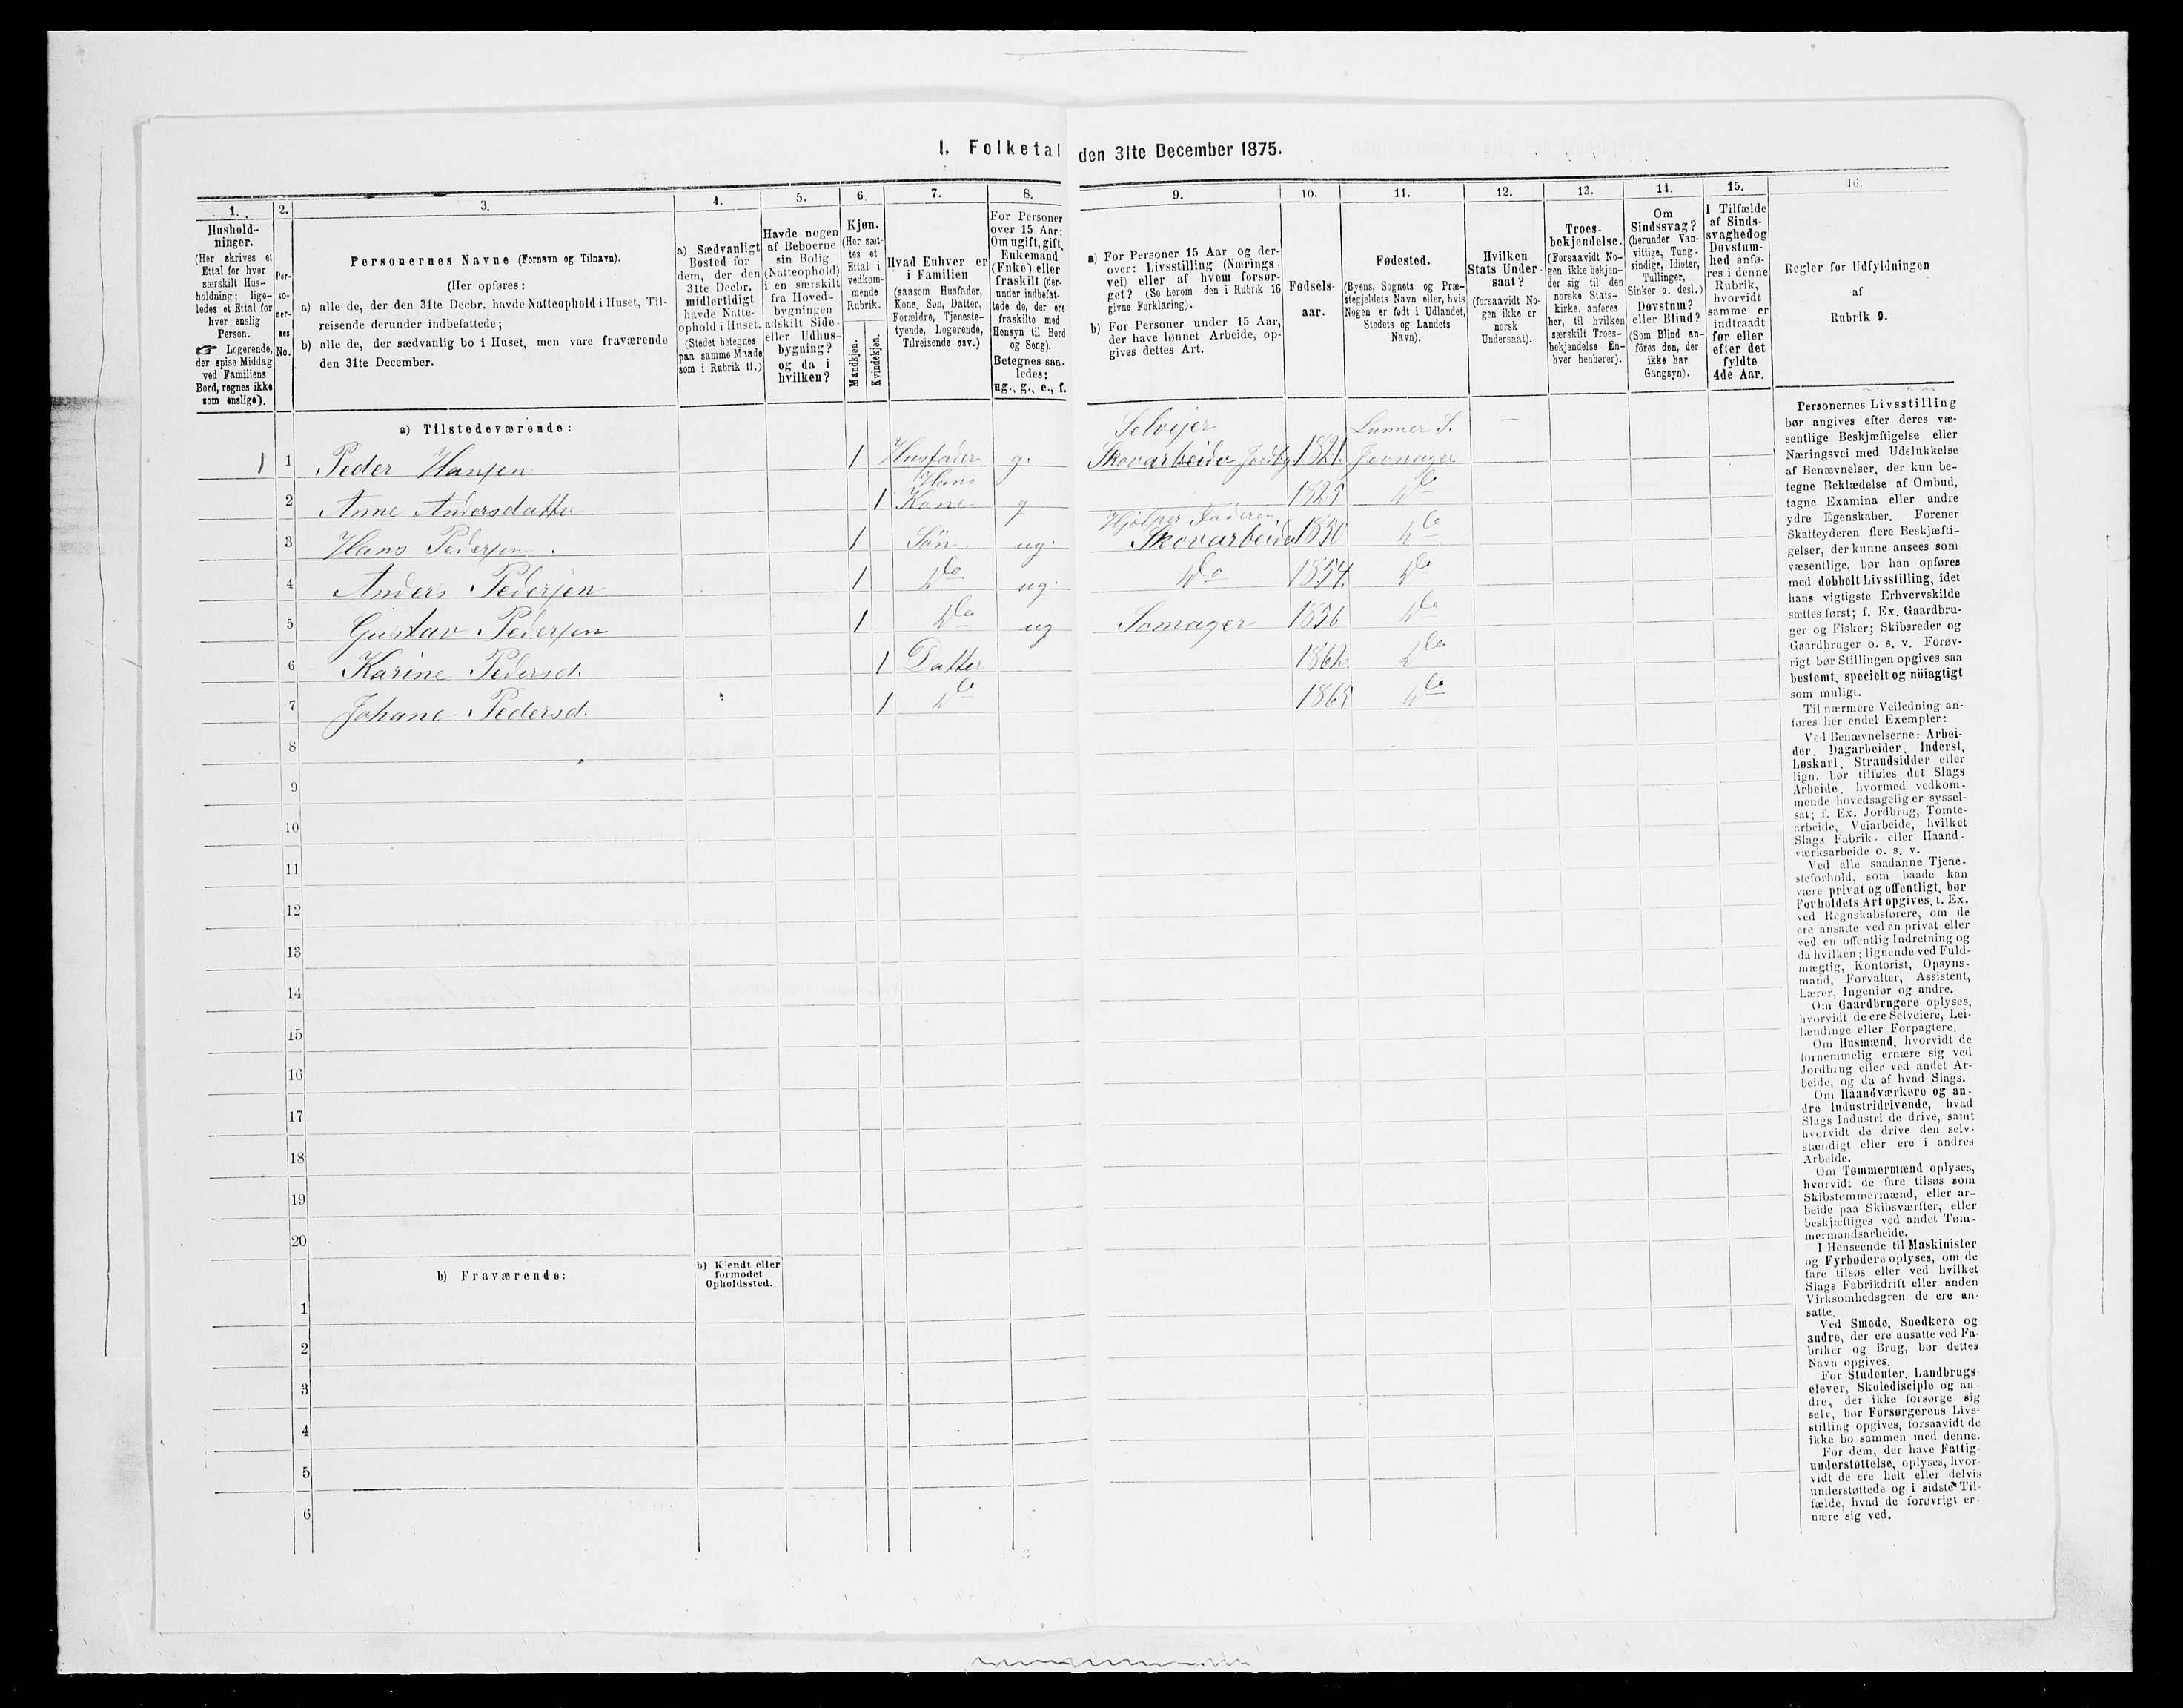 1. Folketal den 31te December 1875.
1.
2.
3.
4.
5.
6.
7.
8.
9.
10.
11.
12.
13.
14.
15.
16.
Hushold-
ninger.
(Her skrives et
Ettal for hver
særskilt Hus-
holdning; lige-
ledes et Ettal for
hver enslig
Person.
☞ Logerende,
der spise Middag
ved Familiens
Bord, regnes ikke
som enslige).
Per-
so-
ner-
nes
No.
Personernes Navne (Fornavn og Tilnavn).
(Her opføres:
a) alle de, der den 31te Decbr. havde Natteophold i Huset, Til-
reisende derunder indbefattede;
b) alle de, der sædvanlig bo i Huset, men vare fraværende
den 31te December.
a) Sædvanligt
Bosted for
dem, der den
31te Decbr.
midlertidigt
havde Natte-
ophold i Huset.
(Stedet betegnes
paa samme Maade
som i Rubrik 11.)
Havde nogen
af Beboerne
sin Bolig
(Natteophold)
i en særskilt
fra Hoved-
bygningen
adskilt Side-
eller Udhus-
bygning?
og da i
hvilken?
Kjøn.
(Her sæt-
tes et
Ettal i
vedkom-
mende
Rubrik.
Mandkjøn.
Kvindekjøn.
Hvad Enhver er
i Familien
(saasom Husfader,
Kone, Søn, Datter,
Forældre, Tjeneste-
tyende, Logerende,
Tilreisende osv.)
For Personer
over 15 Aar:
Om ugift, gift,
Enkemand
(Enke) eller
fraskilt (der-
under indbefat-
tede de, der ere
fraskilte med
Hensyn til Bord
og Seng).
Betegnes saa-
ledes:
ug., g., e., f.
a) For Personer 15 Aar og der-
over: Livsstilling (Nærings-
vei) eller af hvem forsør-
get? (Se herom den i Rubrik 16
givne Forklaring).
b) For Personer under 15 Aar,
der have lønnet Arbeide, op-
gives dettes Art.
Fødsels-
aar.
Fødested.
(Byens, Sognets og Præ-
stegjeldets Navn eller, hvis
Nogen er født i Udlandet,
Stedets og Landets
Navn).
Hvilken
Stats Under-
saat?
(forsaavidt No-
gen ikke er
norsk
Undersaat).
Troes-
bekjendelse.
(Forsaavidt No-
gen ikke bekjen-
der sig til den
norske Stats-
kirke, anføres
her, til hvilken
særskilt Troes-
bekjendelse En-
hver henhører).
Om
Sindssvag?
(herunder Van-
vittige, Tung-
sindige, Idioter,
Tullinger,
Sinker o. desl.)
Døvstum?
eller Blind?
(Som Blind an-
føres den, der
ikke har
Gangsyn).
I Tilfælde
af Sinds-
svaghed og
Døvstum-
hed anfø-
res i denne
Rubrik,
hvorvidt
samme er
indtraadt
før eller
efter det
fyldte
4de Aar.
Regler for Udfyldningen
af
Rubrik 9.
a) Tilstedeværende:
Selvejer Lunner S.
1 1 Peder Hansen 1 Husfader g. Skovarbeider Jordbg 1821. Jevnager
Hans
2 Anne Andersdatter 1 Kone g 1825 Do
Hjølper Faderen
3 Hans Pedersen. 1 Søn. ug. Skovarbeider 1850 Do
4 Anders Pedersen 1 Do ug. Do 1854. Do
5 Gustav Pedersen 1 Do ug Somager 1856 Do
6 Karine Pedersd. 1 Datter 1862. Do
7 Johane Pedersd. 1 Do 1865 Do
8
9
10
11
12
13
14
15
16
17
18
19
20
b) Fraværende:
b) Kjendt eller
formodet
Opholdssted.
1
2
3
4
5
6
Personernes Livsstilling
bør angives efter deres væ-
sentlige Beskjæftigelse eller
Næringsvei med Udelukkelse
af Benævnelser, der kun be-
tegne Beklædelse af Ombud,
tagne Examina eller andre
ydre Egenskaber. Forener
Skatteyderen flere Beskjæfti-
gelser, der kunne ansees som
væsentlige, bør han opføres
med dobbelt Livsstilling, idet
hans vigtigste Erhvervskilde
sættes først; f. Ex. Gaardbru-
ger og Fisker; Skibsreder og
Gaardbruger o. s. v. Forøv-
rigt bør Stillingen opgives saa
bestemt, specielt og nöiagtigt
som muligt.
Til nærmere Veiledning an-
føres her endel Exempler:
Ved Benævnelserne: Arbei-
der, Dagarbeider, Inderst,
Løskarl, Strandsidder eller
lign. bør tilføies det Slags
Arbeide, hvormed vedkom-
mende hovedsagelig er syssel-
sat; f. Ex. Jordbrug, Tomte-
arbeide, Veiarbeide, hvilket
Slags Fabrik- eller Haand-
værksarbeide o. s. v.
Ved alle saadanne Tjene-
steforhold, som baade kan
være privat og offentligt, bør
Forholdets Art opgives, t. Ex.
ved Regnskabsførere, om de
ere ansatte ved en privat eller
ved en offentlig Indretning og
da hvilken; lignende ved Fuld-
mægtig, Kontorist, Opsyns-
mand, Forvalter, Assistent,
Lærer, Ingeniør og andre.
Om Gaardbrugere oplyses,
hvorvidt de ere Selveiere, Lei-
lændinge eller Forpagtere.
Om Husmænd, hvorvidt de
fornemmelig ernære sig ved
Jordbrug eller ved andet Ar-
beide, og da af hvad Slags.
Om Haandværkere og an-
dre Industridrivende, hvad
Slags Industri de drive, samt
hvorvidt de drive den selv-
stændigt eller ere i andres
Arbeide.
Om Tømmermænd oplyses,
hvorvidt de fare tilsøs som
Skibstømmermænd, eller ar-
beide paa Skibsværfter, eller
beskjæftiges ved andet Tøm-
mermandsarbeide.
I Henseende til Maskinister
og Fyrbødere oplyses, om de
fare tilsøs eller ved hvilket
Slags Fabrikdrift eller anden
Virksomhedsgren de ere an-
satte.
Ved Smede, Snedkere og
andre, der ere ansatte ved Fa-
briker og Brug, bør dettes
Navn opgives.
For Studenter, Landbrugs-
elever, Skoledisciple og an-
dre, der ikke forsørge sig
selv, bør Forsørgerens Livs-
stilling opgives, forsaavidt de
ikke bo sammen med denne.
For dem, der have Fattig-
understøttelse, oplyses, hvor-
vidt de ere helt eller delvis
understøttede og i sidste Til-
fælde, hvad de forøvrigt er-
nære sig ved.